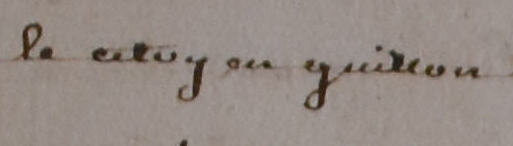 le citoyen guillon